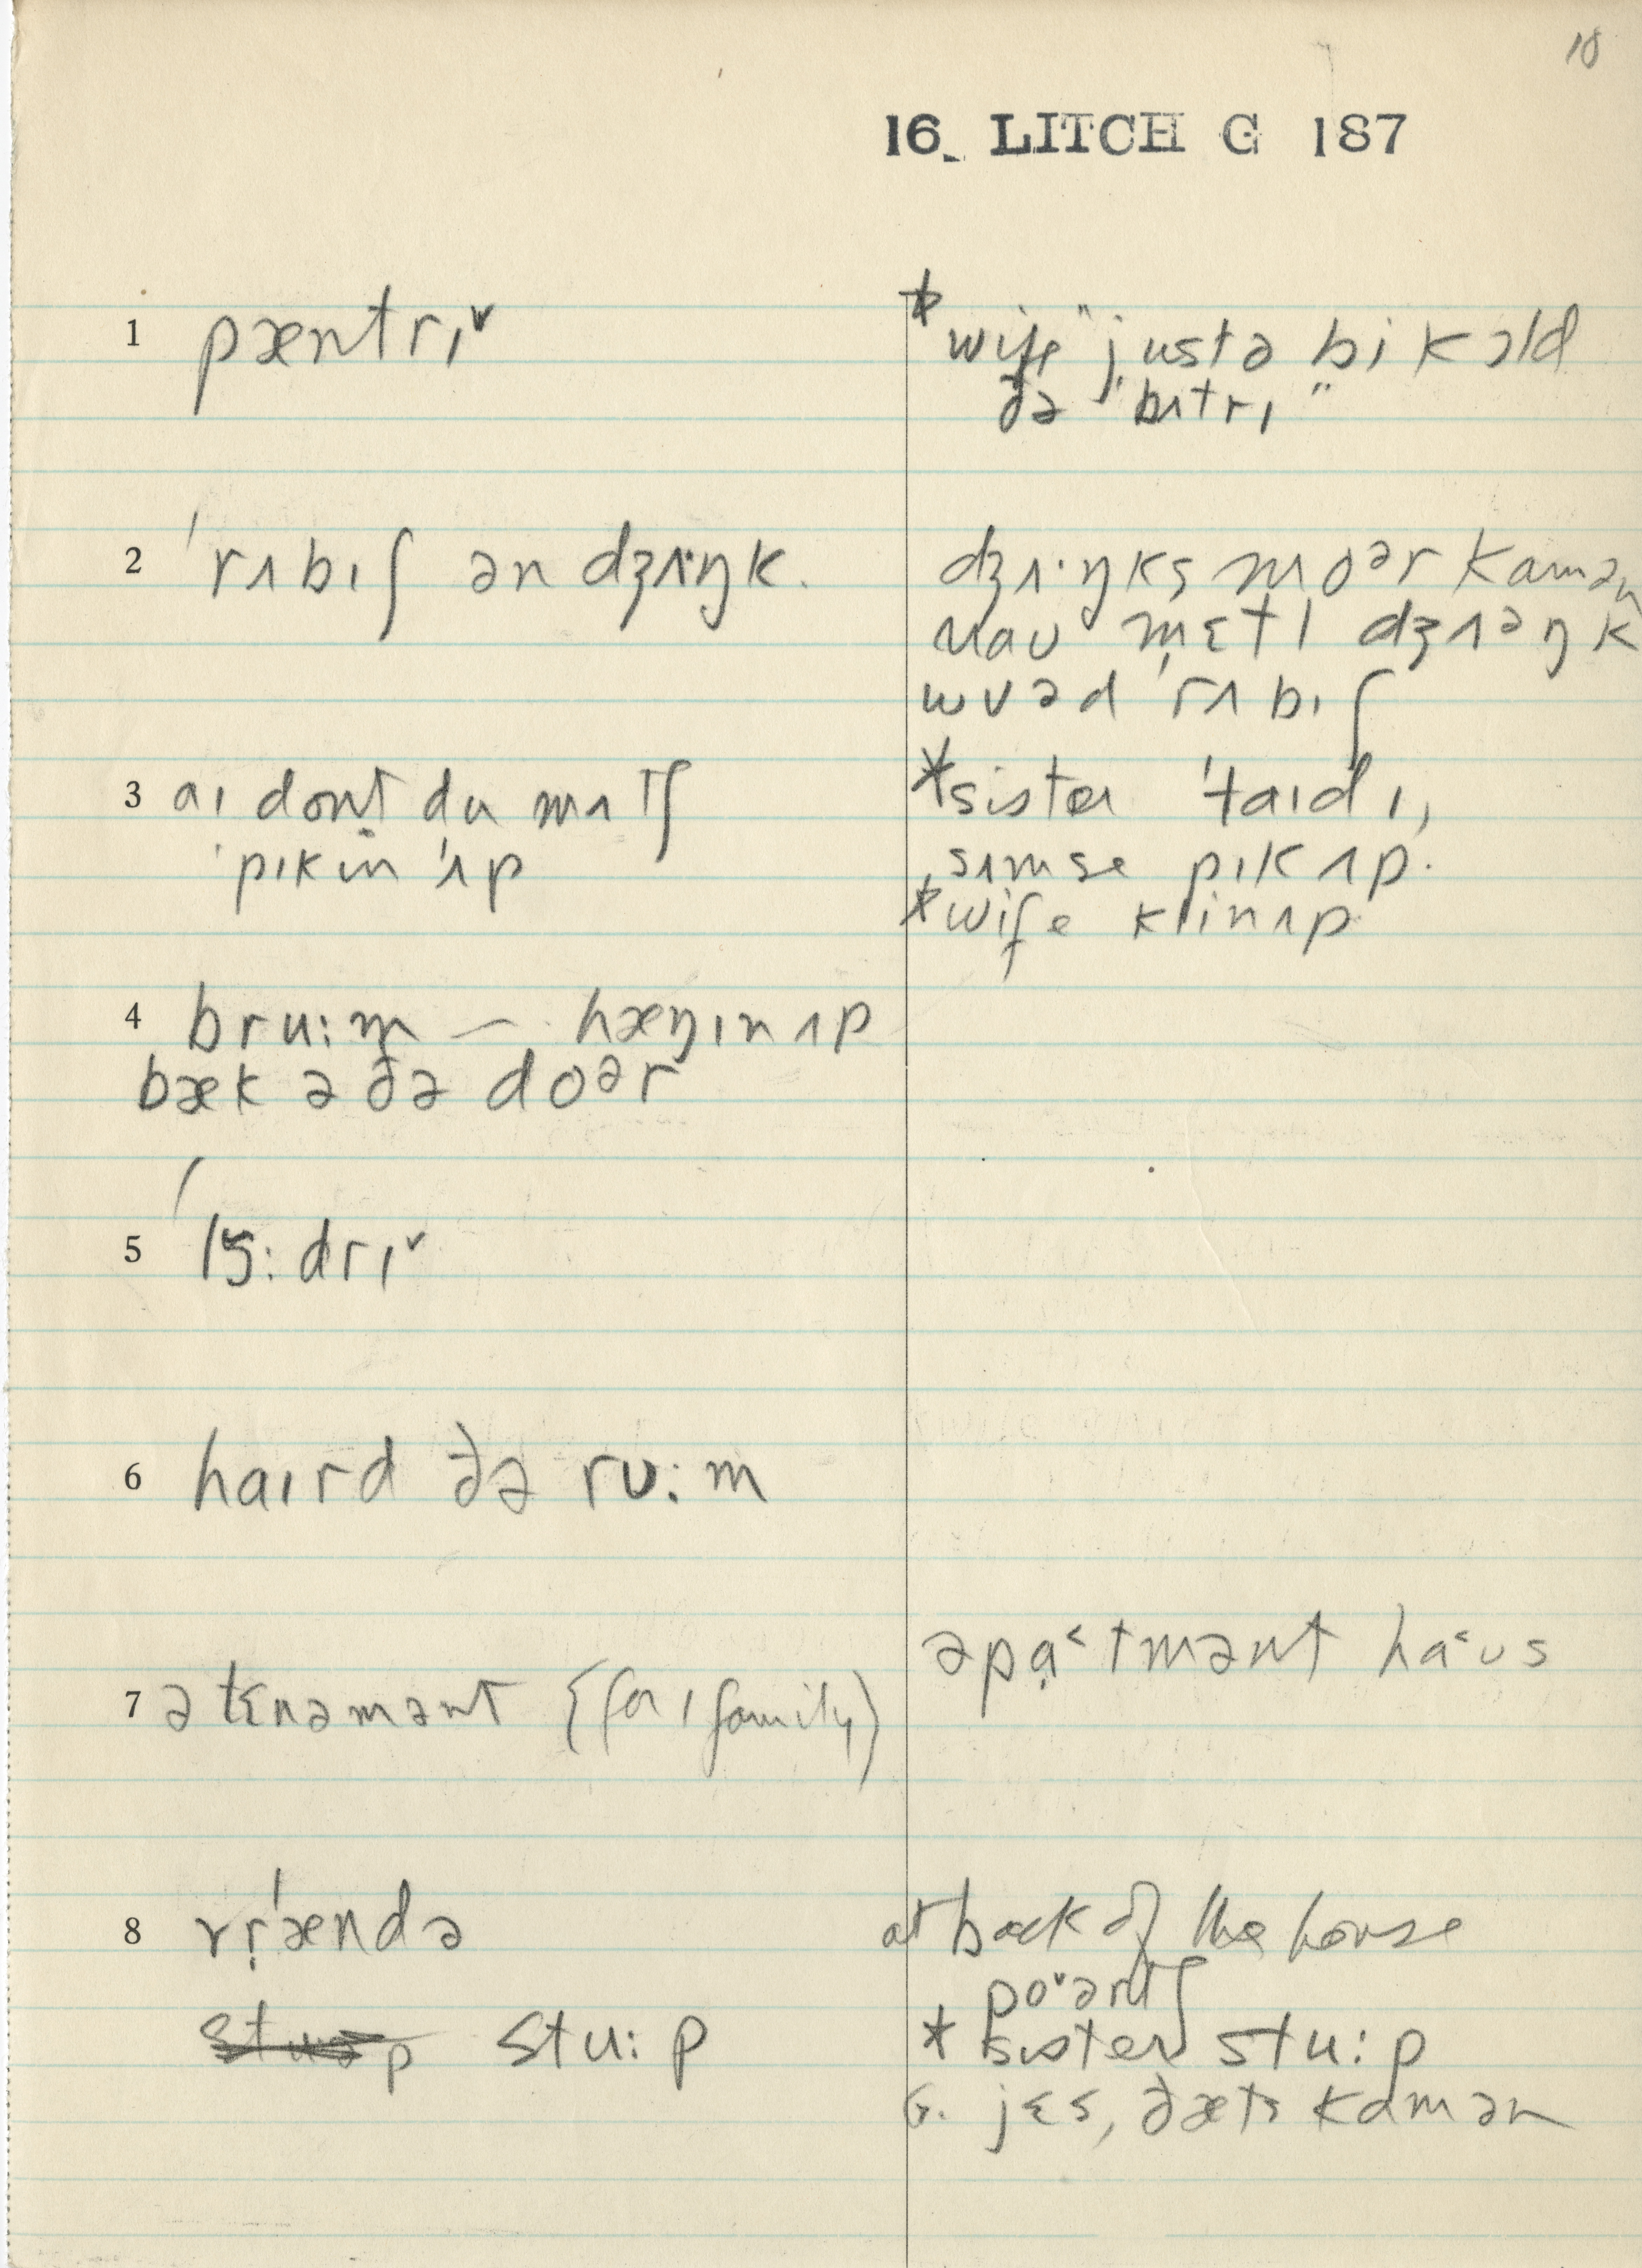 18
16 LITCH G 187
1 pæntrɪ˅
*"wife" justə bi kɔld
ðə 'bʌtrɪ"
2 'rʌbɪʃ ən dʒʌ·ŋk.
dʒʌ·ŋks moᵊr kamən
nau mɛtl dʒʌəŋk
wʊəd 'rʌbɪʃ
3 aɪ dont du mʌtʃ
'pɪkin 'ʌp
*sister 'taɪdɪ,
sʌmse pɪk ʌp.
*wife klinʌp
4 bru:m — hæŋɪn ʌp
bæk ə ðə doᵊr
5 'lɔ̃:drɪ˅
6 haɪrd ðə rʊ:m
7 ə tɛnəmənt (for 1 family)
əpạ˂tmənt ha˂ʊs
8 vṛ'ændə
at back of the house
po˅ərtʃ
stu:p
* sister stu:p
G. jɛs, ðæts kɑmən